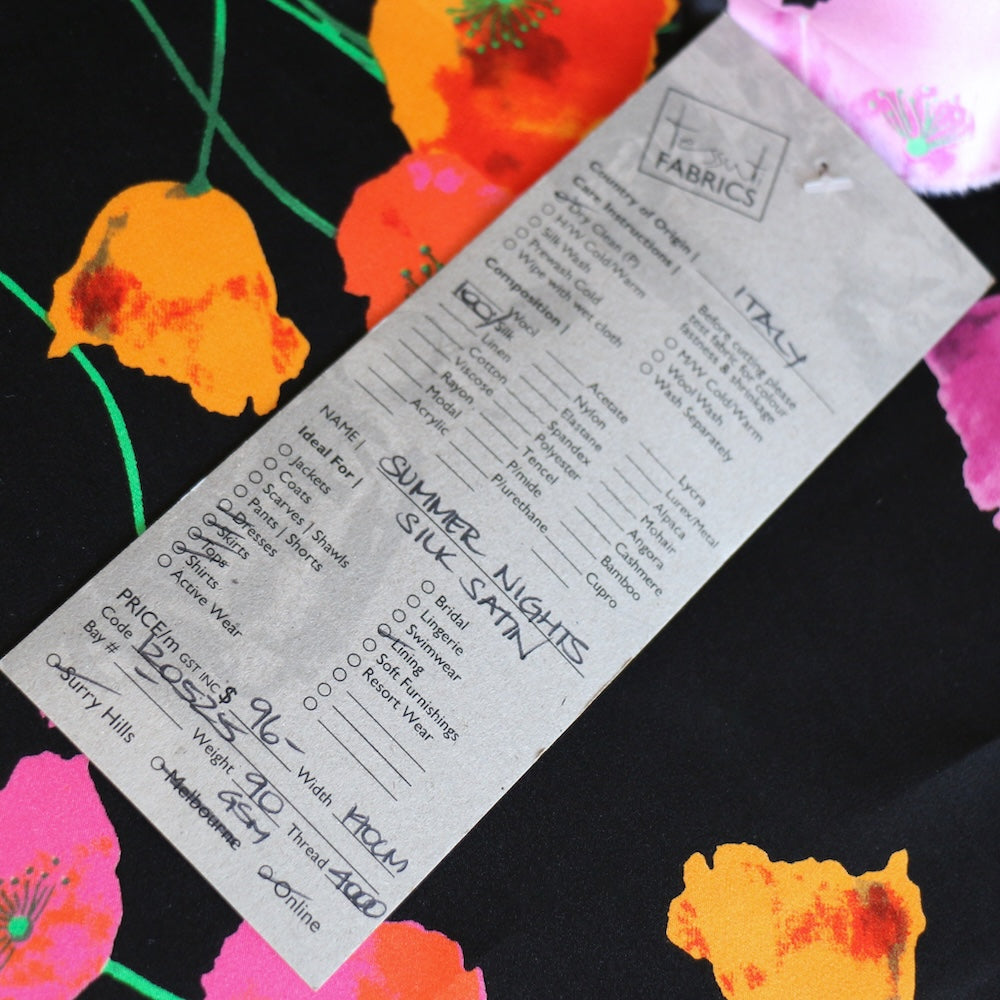 Tessuti
FABRICS
Country of Origin | ITALY
Care Instructions |
Dry Clean (P)
H/W Cold/Warm
Silk Wash
Prewash Cold
Wipe with wet cloth
Before cutting please
test fabric for colour
fastness & shrinkage
M/W Cold/Warm
Wool Wash
Wash Separately
Composition |
Wool
100% Silk
Linen
Cotton
Viscose
Rayon
Modal
Acrylic
Acetate
Nylon
Elastane
Spandex
Polyester
Tencel
P/mide
P/urethane
Lycra
Lurex/Metal
Alpaca
Mohair
Angora
Cashmere
Bamboo
Cupro
NAME | SUMMER NIGHTS
SILK SATIN
Ideal For |
Jackets
Coats
Scarves | Shawls
Pants | Shorts
Dresses
Skirts
Tops
Shirts
Active Wear
Bridal
Lingerie
Swimwear
Lining
Soft Furnishings
Resort Wear
PRICE/m GST INC $ 96- Width 140CM
Code 120525 Weight 90 GSM Thread 4000
Bay #
Surry Hills
Melbourne
Online